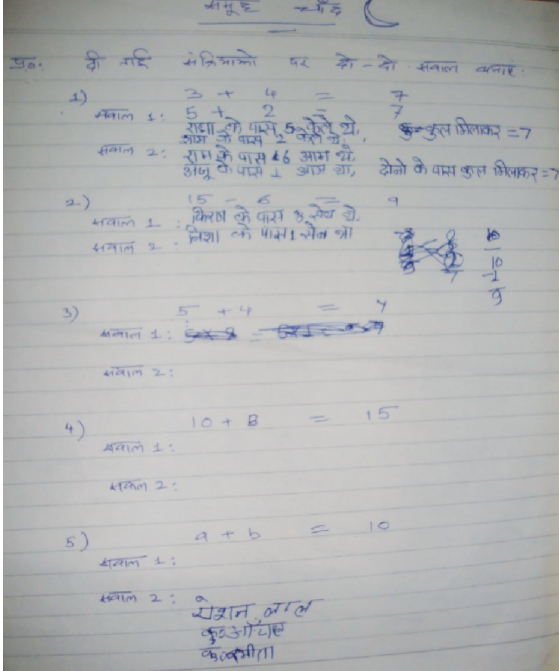 समूह चाँद
प्र०. दी गई संक्रियाओं पर दो-दो सवाल बनाए.
1) 3 + 4 = 7
सवाल 1: 5 + 2 = 7
राधा के पास 5 केले थे,
आम के पास 2 केले थे, कुल मिलाकर = 7
सवाल 2: राम के पास 6 आम थे.
अजू के पास 1 आम था, दोनो के पास कुल मिलाकर = 7
2) 15 - 6 = 9
सवाल 1: किरण के पास 8 सेब थे.
सवाल 2: निशा के पास 1 सेब था
10
9
3) 5 + 4 = y
सवाल 1:
सवाल 2:
4) 10 + B = 15
सवाल 1:
सवाल 2:
5) a + b = 10
सवाल 1:
सवाल 2:
रोशन लाल